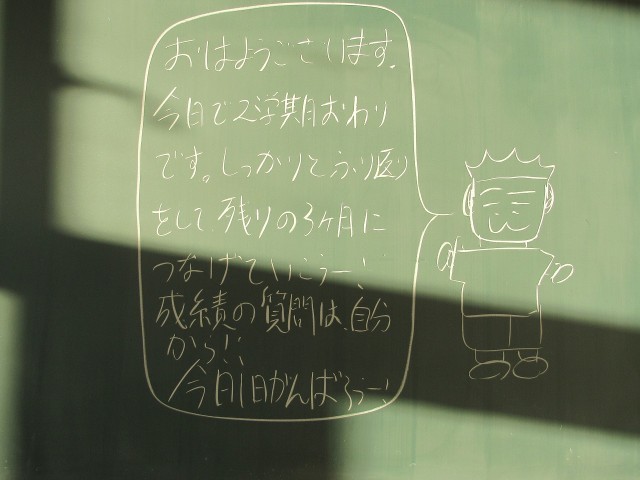 おはようございます。
今日で2学期おわり
です。しっかりとふり返り
をして、残りの3ヶ月に
つなげていこうー!
成績の質問は、自分
から!!
今日1日がんばろうー!